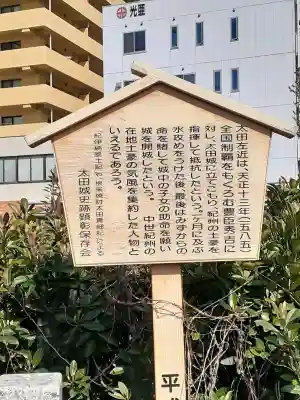 光亜
太田左近は、天正十三年(一五八五)
全国制覇をもくろむ豊臣秀吉に
対し、太田城に立てこもり、紀州の土豪を
指揮して抵抗したという。一ヶ月に及ぶ
水攻めをうけた後、最後はみずからの
命を賭して城中の子女の助命を願い
城を開城したという。 中世紀州の
在地土豪の気風を集約した人物と
いえるであろう。
太田城史跡顕彰保存会
平成